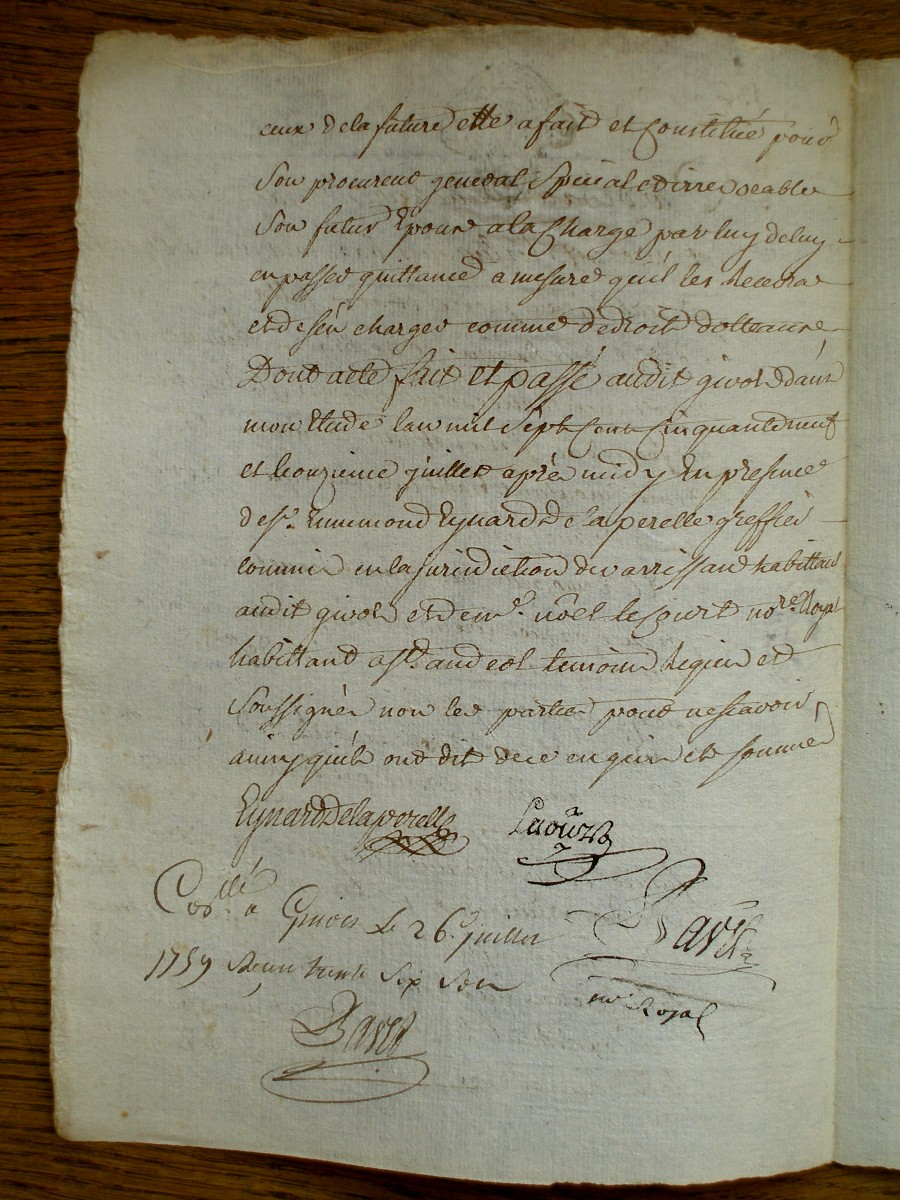 ceux de la future elle a fait et Constitué pour
Son procureur general Special et irrevocable
Son futur Epoux a la Charge par luy de luy
en passer quittance a mesure qu'il les Recevra
et de s'en charger comme de droit
Dont acte fait et passé audit givors dans
mon Etude l'an mil Sept Cent Cinquante neuf
et le onzieme juillet après midy En presence
de Sr. Ennemond Eynard De la perelle greffier
commis en la jurisdiction habittant
audit givors et de me. nôel no.re Royal
habittant a St. andeol temoins Requis et
Soussignés non les parties pour ne scavoir
ainsy qu'ils ont dit de ce enquis et sommés
Eynard Delaperelle
Con.llé a Givors Le 26e. juillet
1759 Reçu trente Six Sols
Ravet
nore Royal
Ravet